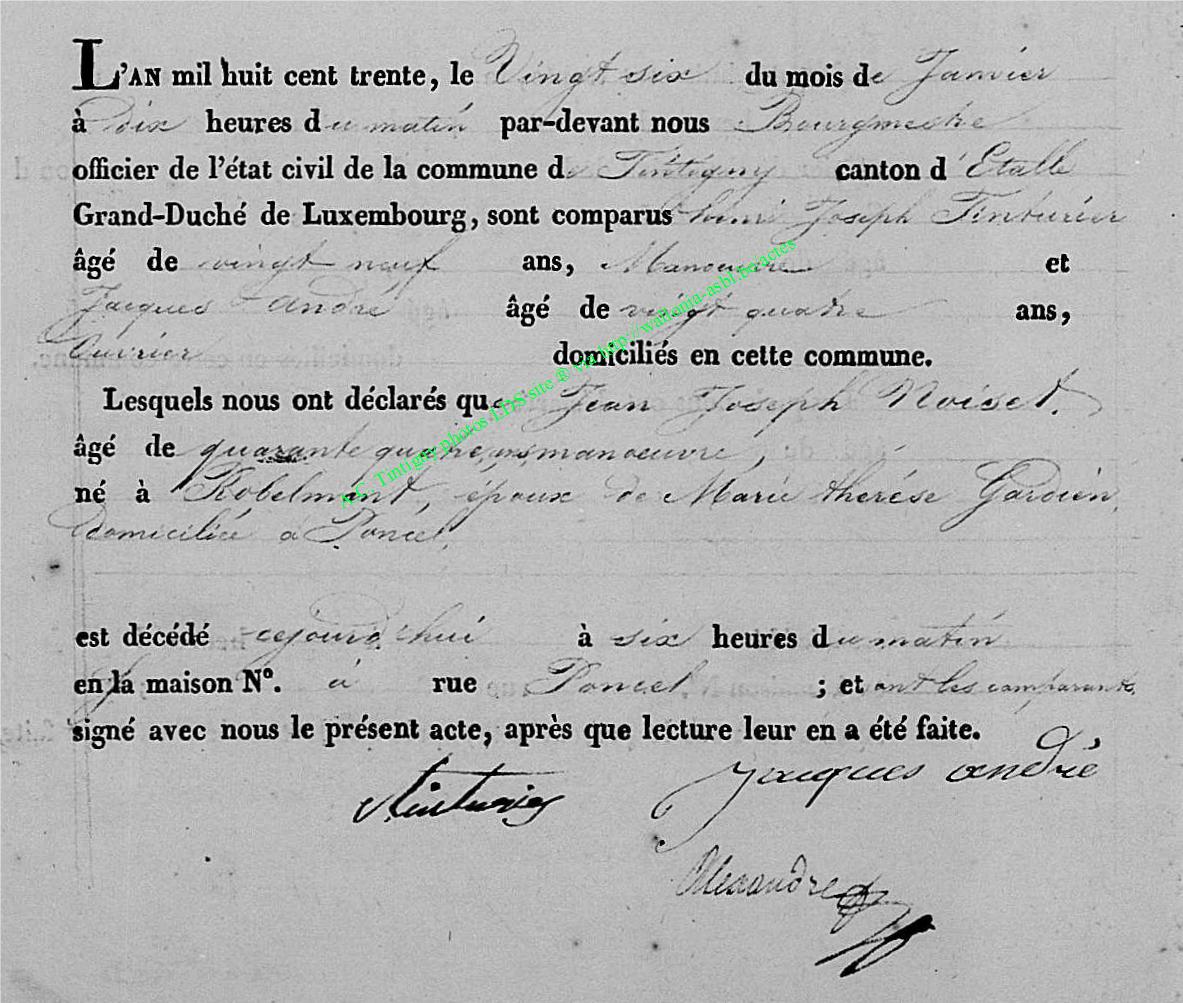 L'AN mil huit cent trente, le Vingt six du mois de Janvier
à dix heures du matin par-devant nous Bourgmestre
officier de l'état civil de la commune de Tintigny canton d'Etalle
Grand-Duché de Luxembourg, sont comparus henri Joseph Tinturier
âgé de vingt neuf ans, Manoeuvre et
Jacques André âgé de vingt quatre ans,
Ouvrier domiciliés en cette commune.
Lesquels nous ont déclarés que Jean Joseph Noiset,
âgé de quarante quatre ans manoeuvre,
né à Robelmont, époux de Marie thérése Gardien,
domiciliée à Poncel,
est décédé cejourd'hui à six heures du matin
en la maison N°. à rue Poncel ; et ont les comparants
signé avec nous le présent acte, après que lecture leur en a été faite.
Jacques andré
Tinturier
Alexandre
A.C. Tintigny photos LDS site ® via http://wallonia-asbl.be/actes